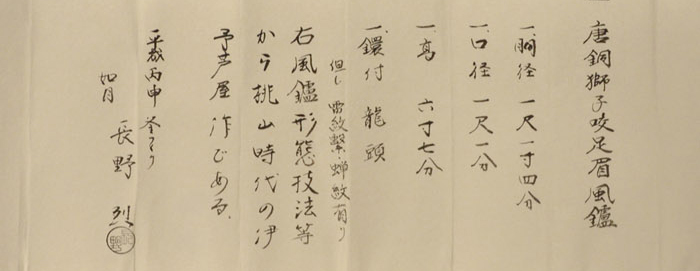 唐銅獅子咬足眉風鑪
一、胴径 一尺一寸四分
一、口径 一尺一分
一、高 六寸七分
一、鐶付 龍頭
但し 雷紋繋・蝉紋有り
右風鑪形態技法等
から桃山時代の伊
予芦屋作である。
平成丙申
如月
長野 烈